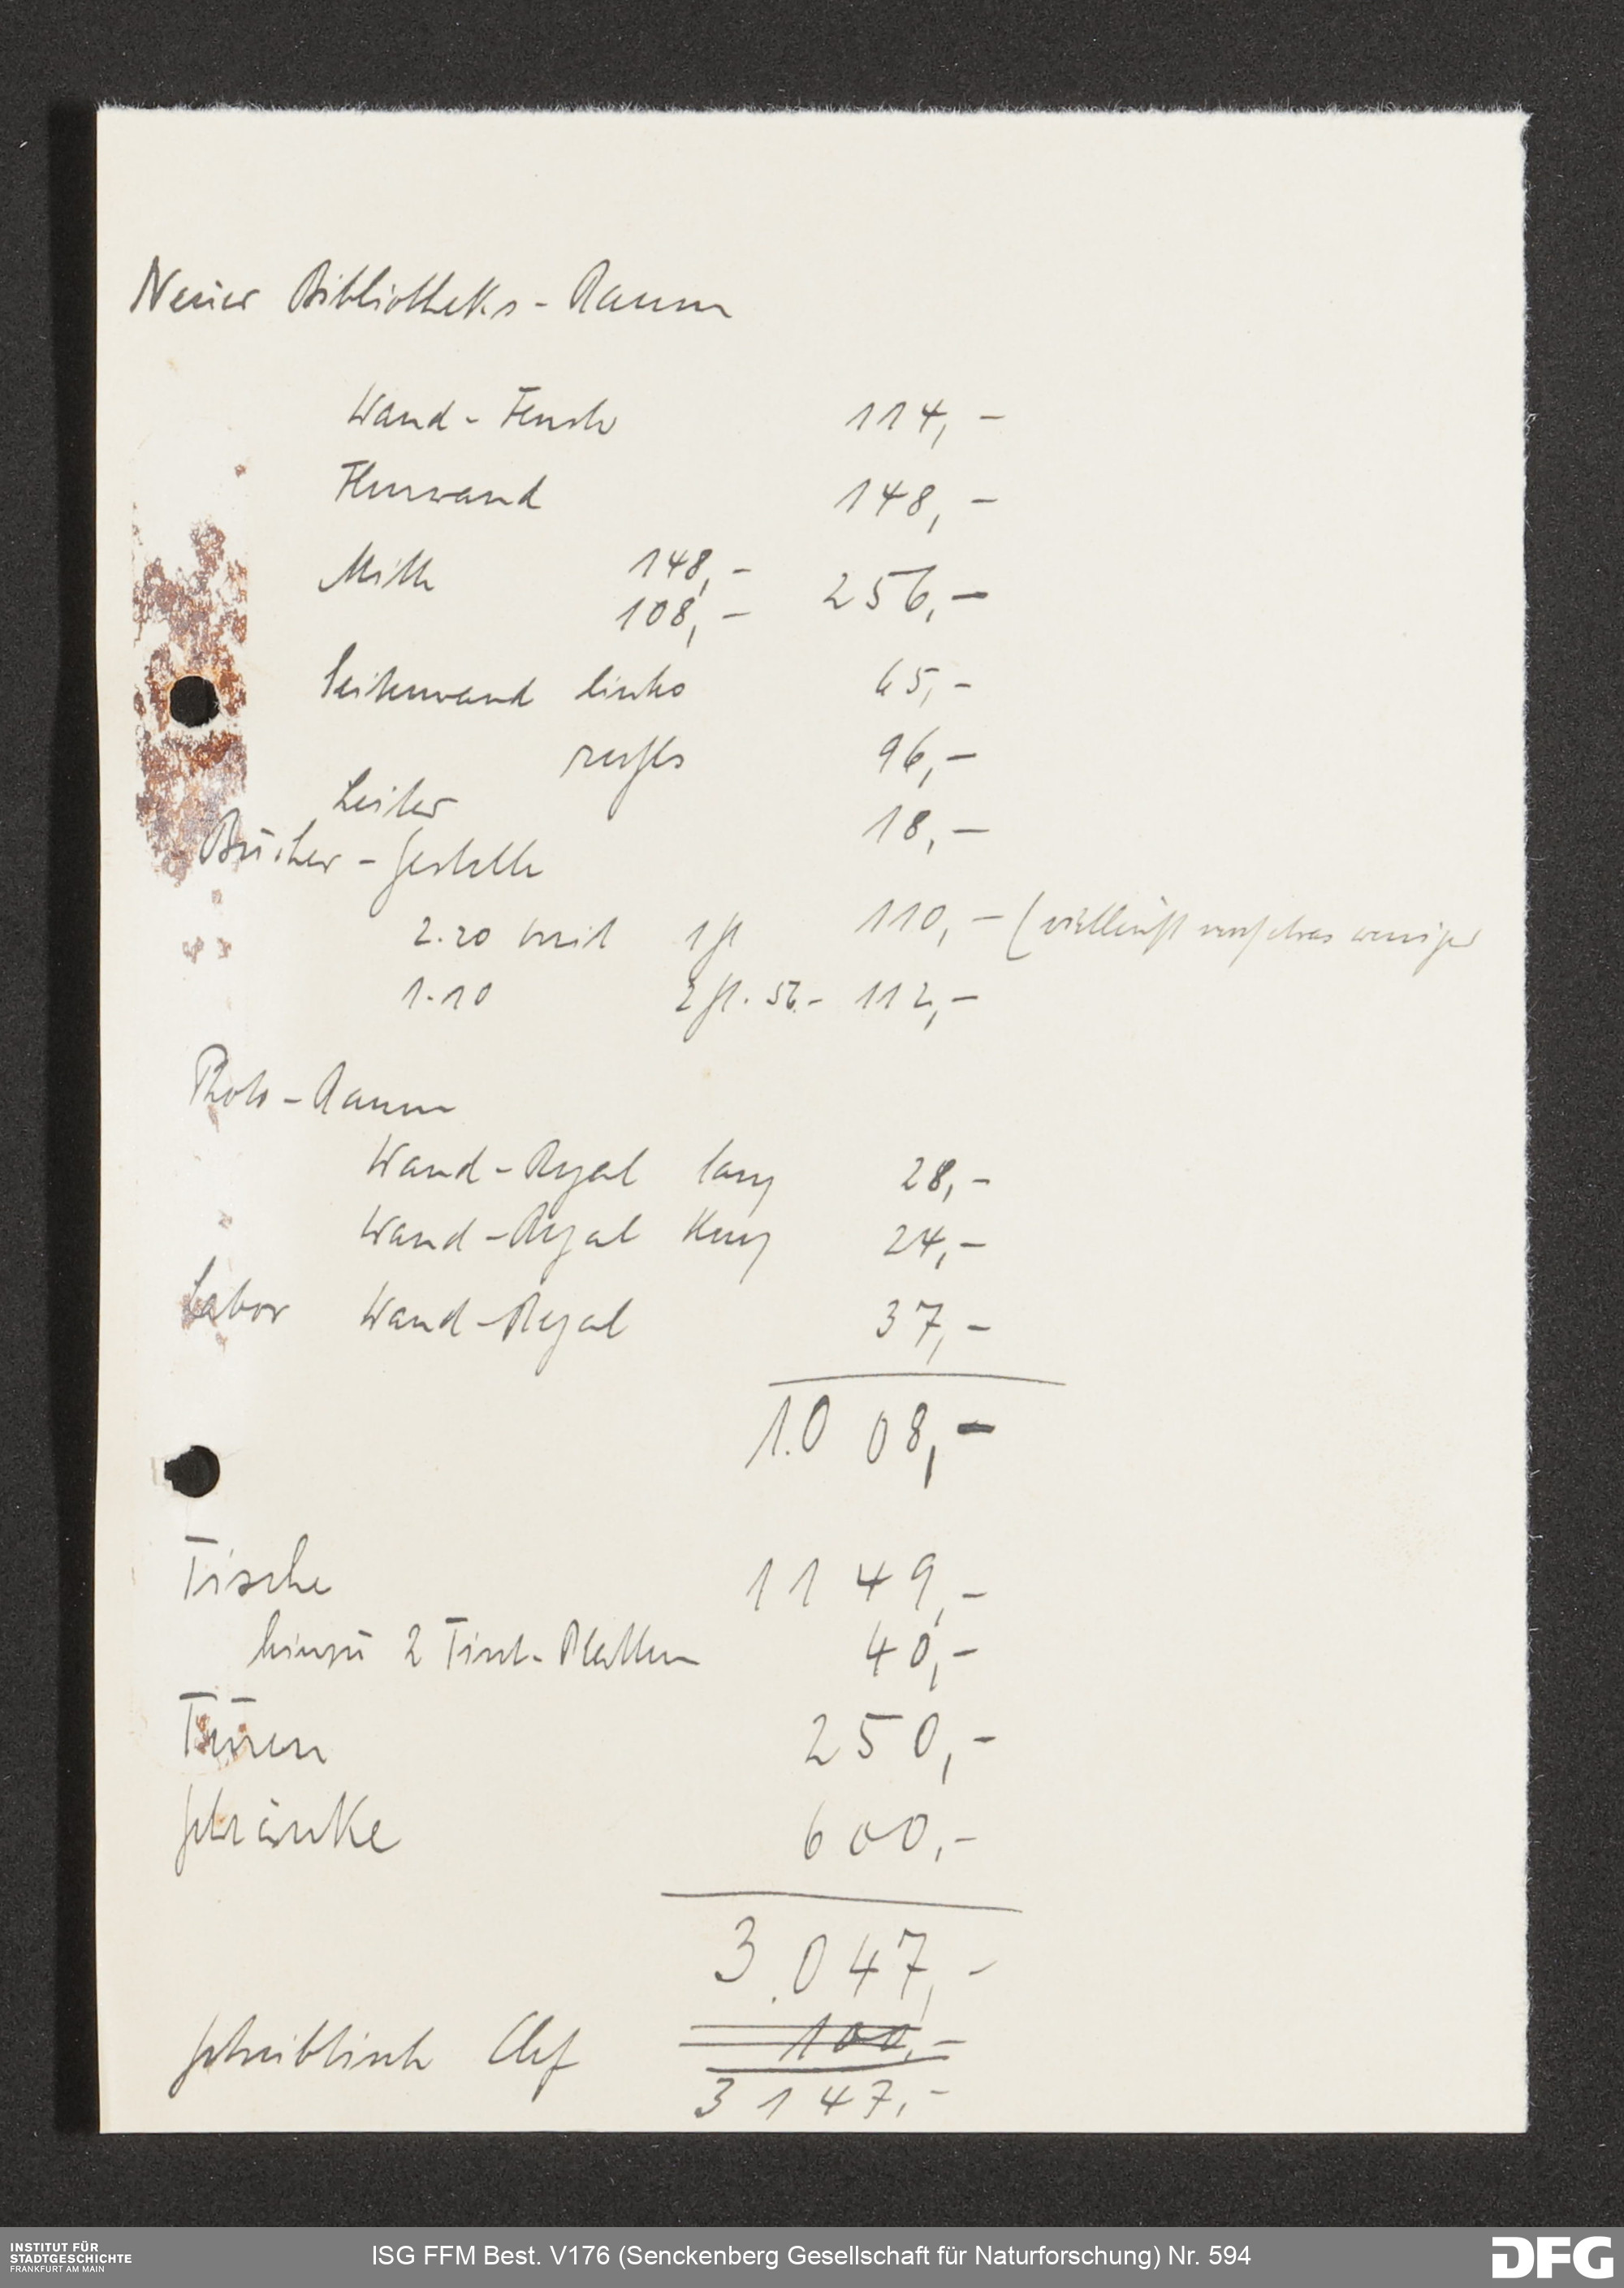 Neuer Bibliotheks-Raum
Wand-Fenster 114,-
Flurwand 148,-
Mitte 148,- 256,-
108,-
Seitenwand links 65,-
rechts 96,-
Leiter 18,-
Bücher-Gestelle
2.20 breit 1 St 110,- (vielleicht noch etwas weniger
1.10 2 St. 56.- 112,-
Photo-Raum
Wand-Regal lang 28,-
Wand-Regal kurz 24,-
Labor Wand-Regal 37,-
1.008,-
Tische 1149,-
hinzu 2 Tisch-Platten 40,-
Türen 250,-
Schränke 600,-
3.047,-
Schreibtisch Chef 100,-
3147,-
INSTITUT FÜR
STADTGESCHICHTE
FRANKFURT AM MAIN
ISG FFM Best. V176 (Senckenberg Gesellschaft für Naturforschung) Nr. 594
DFG